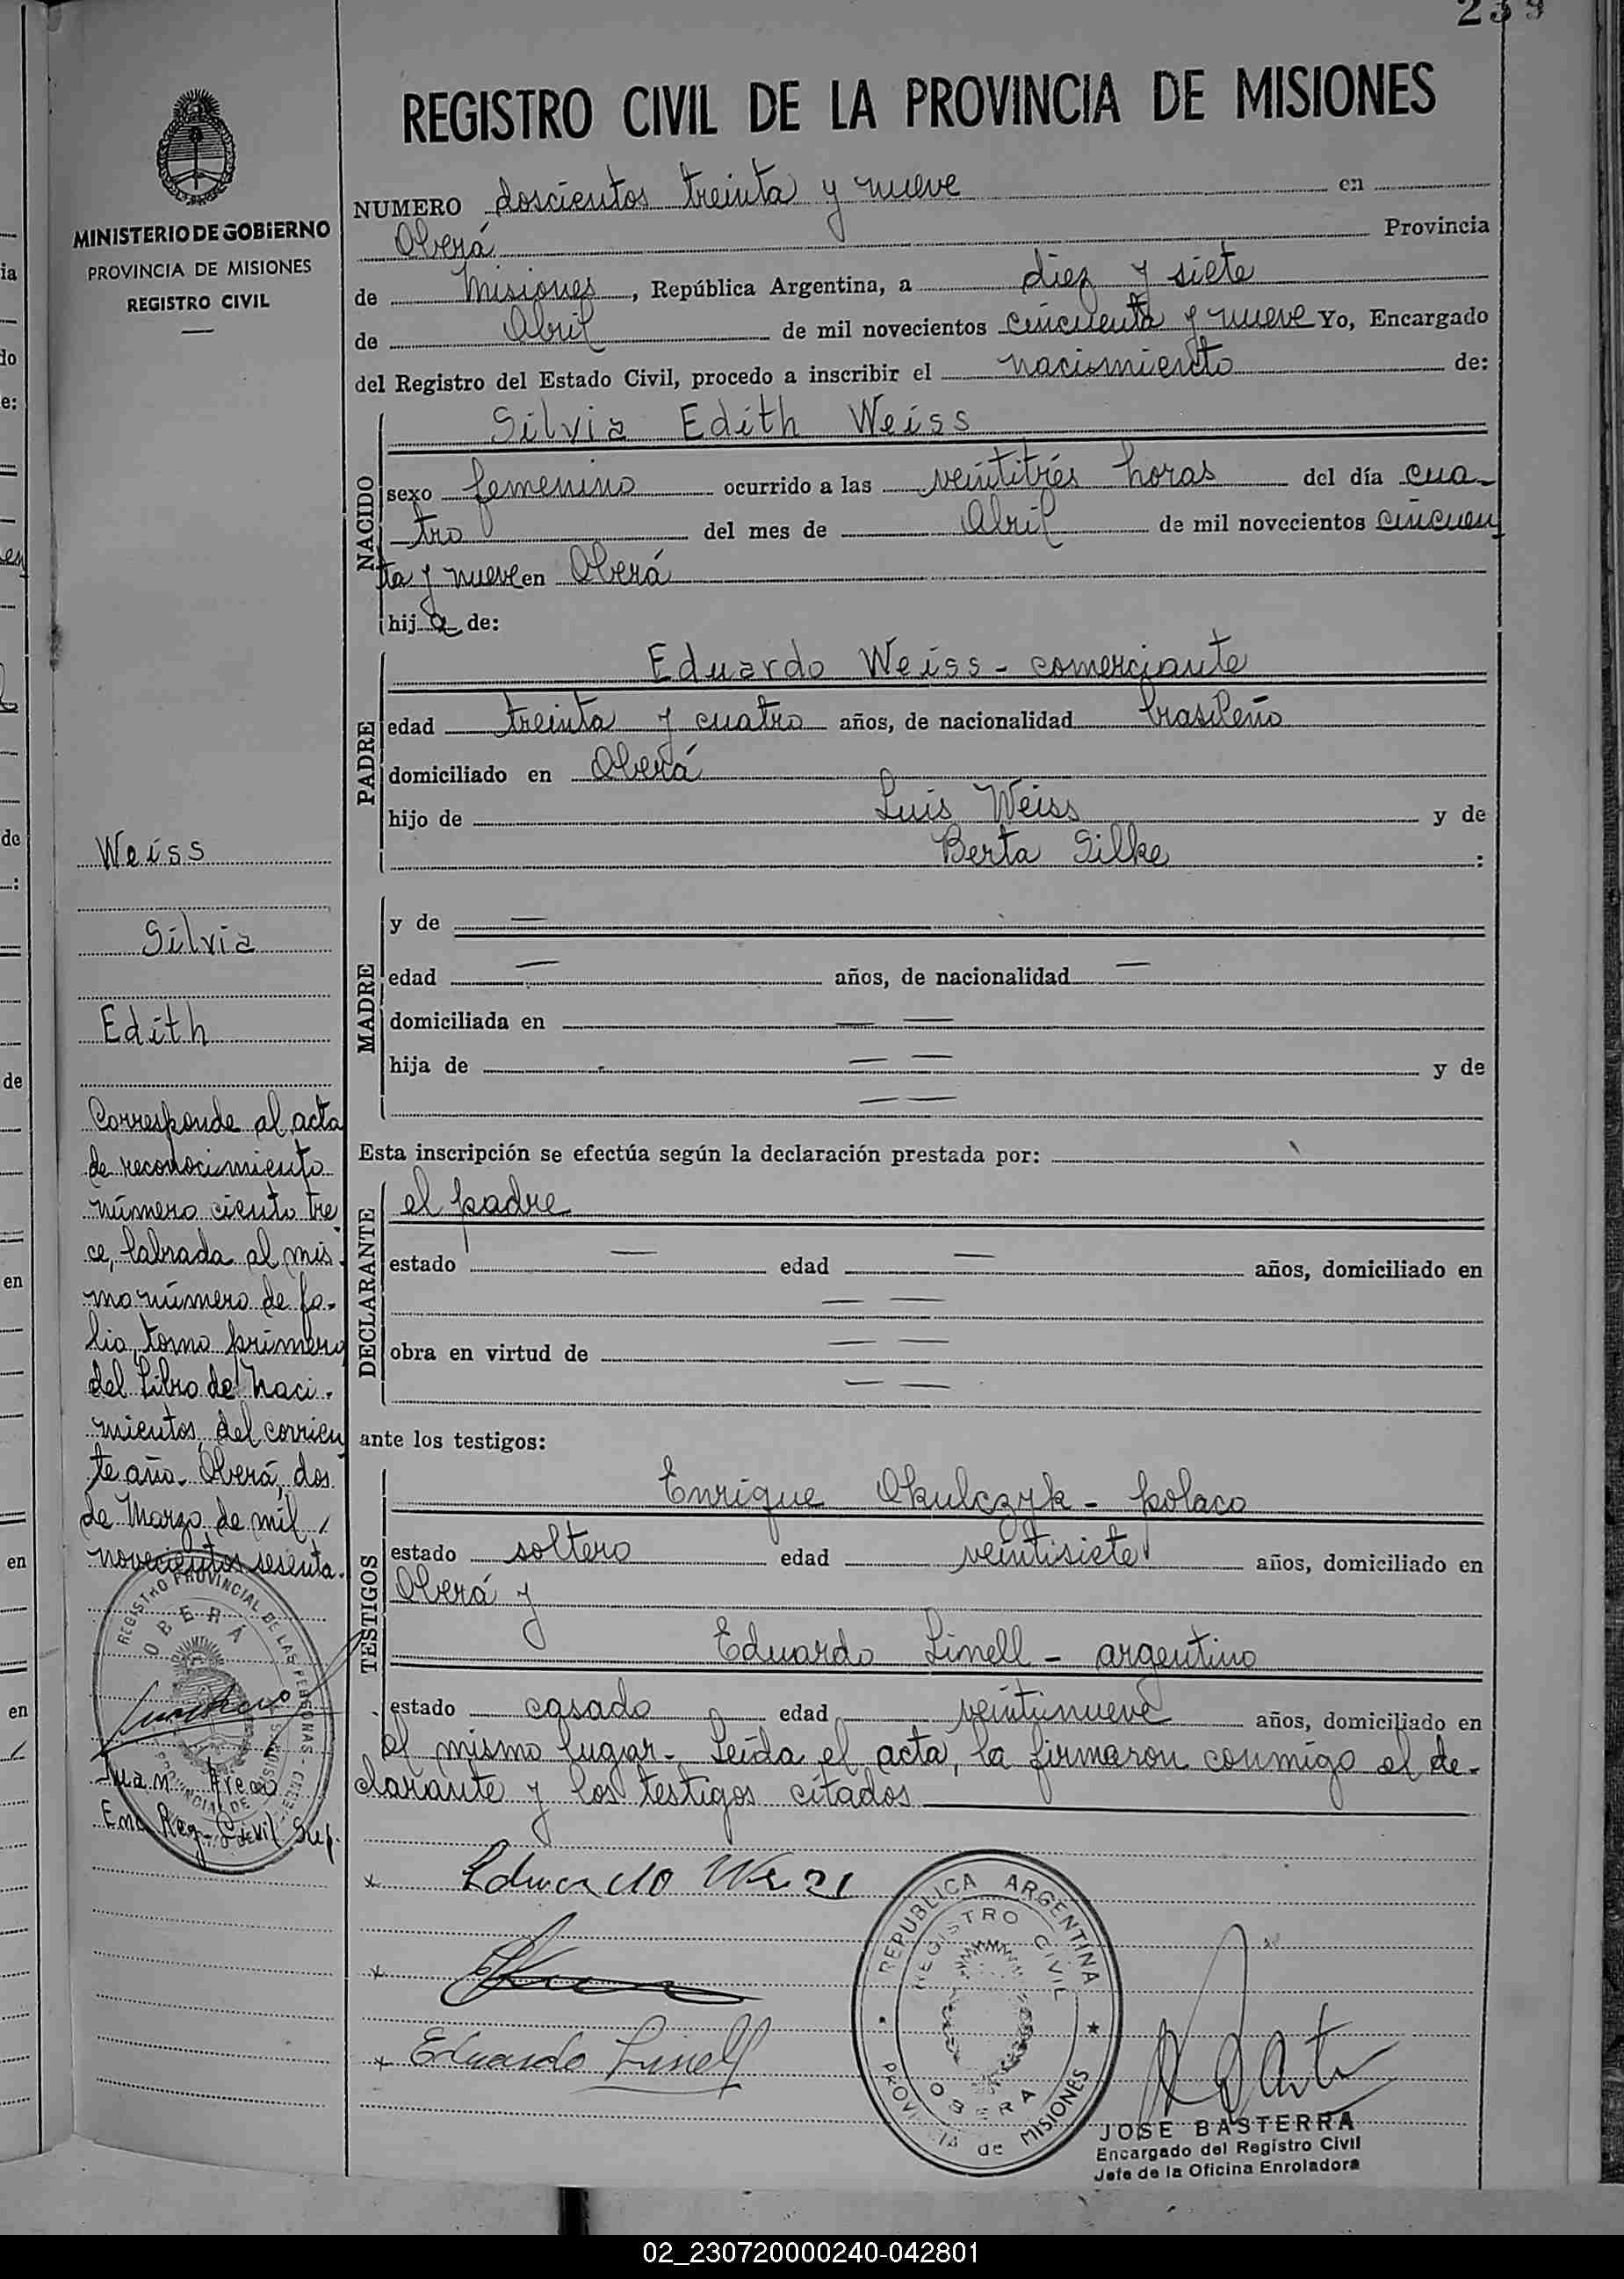 239
REGISTRO CIVIL DE LA PROVINCIA DE MISIONES
MINISTERIO DE GOBIERNO
PROVINCIA DE MISIONES
REGISTRO CIVIL
NUMERO doscientos treinta y nueve en
Oberá Provincia
de Misiones, República Argentina, a diez y siete
de Abril de mil novecientos cincuenta y nueve Yo, Encargado
del Registro del Estado Civil, procedo a inscribir el nacimiento de:
NACIDO
Silvia Edith Weiss
sexo femenino ocurrido a las veintitrés horas del día cua-
tro del mes de Abril de mil novecientos cincuen
ta y nueve en Oberá
hija de:
PADRE
Eduardo Weiss - comerciante
edad treinta y cuatro años, de nacionalidad brasileño
domiciliado en Oberá
hijo de Luis Weiss y de
Berta Silke :
MADRE
y de —
edad — años, de nacionalidad —
domiciliada en — —
hija de — — y de
— —
Esta inscripción se efectúa según la declaración prestada por:
DECLARANTE
el padre
estado — edad — años, domiciliado en
— —
obra en virtud de — —
— —
ante los testigos:
TESTIGOS
Enrique Okulczyk - polaco
estado soltero edad veintisiete años, domiciliado en
Oberá y
Eduardo Linell - argentino
estado casado edad veintinueve años, domiciliado en
el mismo lugar - Leída el acta, la firmaron conmigo el de-
clarante y los testigos citados
Weiss
Silvia
Edith
Corresponde al acta
de reconocimiento
número ciento tre
ce, labrada al mis
mo número de fo-
lio, tomo primero
del Libro de Naci-
mientos del corrien
te año - Oberá, dos
de Marzo de mil
novecientos sesenta.
REGISTRO PROVINCIAL DE LAS PERSONAS
OBERÁ
Enc Reg. Civil Sup.
x Eduardo Weiss
x
x Eduardo Linell
REPUBLICA ARGENTINA
REGISTRO CIVIL
OBERA
PROVINCIA de MISIONES
JOSE BASTERRA
Encargado del Registro Civil
Jefe de la Oficina Enroladora
02_230720000240-042801